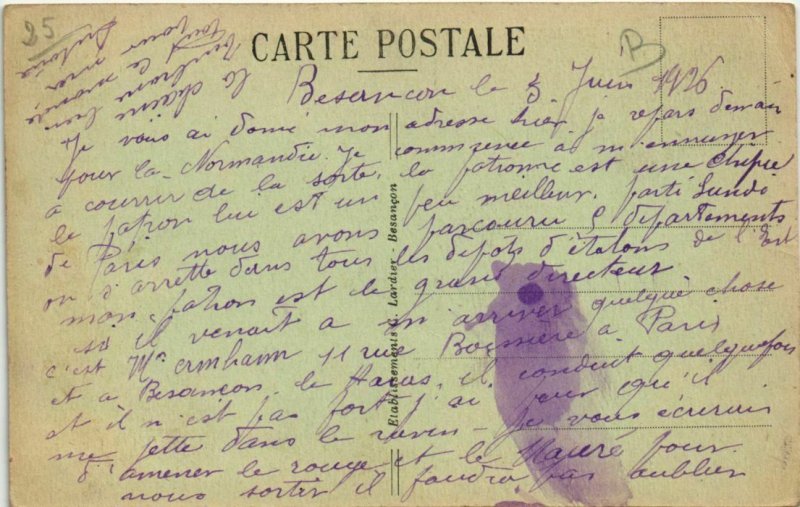 25
CARTE POSTALE
B
Besançon le 3 Juin 1926
Je vous ai donné mon adresse hier je repars demain
pour la Normandie. Je commence à m'ennuyer
a courrir de la sorte, la patronne est une chipie
le patron lui est un peu meilleur, parti Lundi
de Paris nous avons parcouru 5 départements
on s'arrette dans tous les dépots d'étalons de l'Est
mon patron est le grand directeur
si il venait a m arriver quelque chose
c'est Mr 11 rue Boissière a Paris
et a Besançon, le Haras, il conduit quelquefois
et il n est pas fort j'ai peur qu'il
me jette dans le ravin - Je vous écrirai
d'amener le rouge et le pour
nous sortir il faudra pas oublier
la chaine bien
le
pour
tout
Etablissements C. Lardier - Besançon